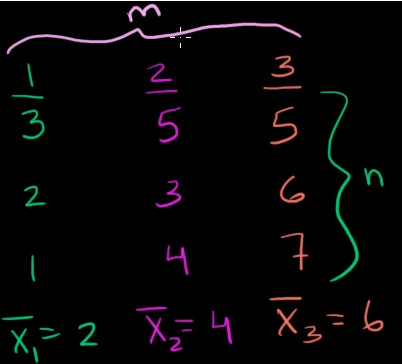 m
1 2 3
3 5 5 n
2 3 6
1 4 7
x̄₁ = 2 x̄₂ = 4 x̄₃ = 6